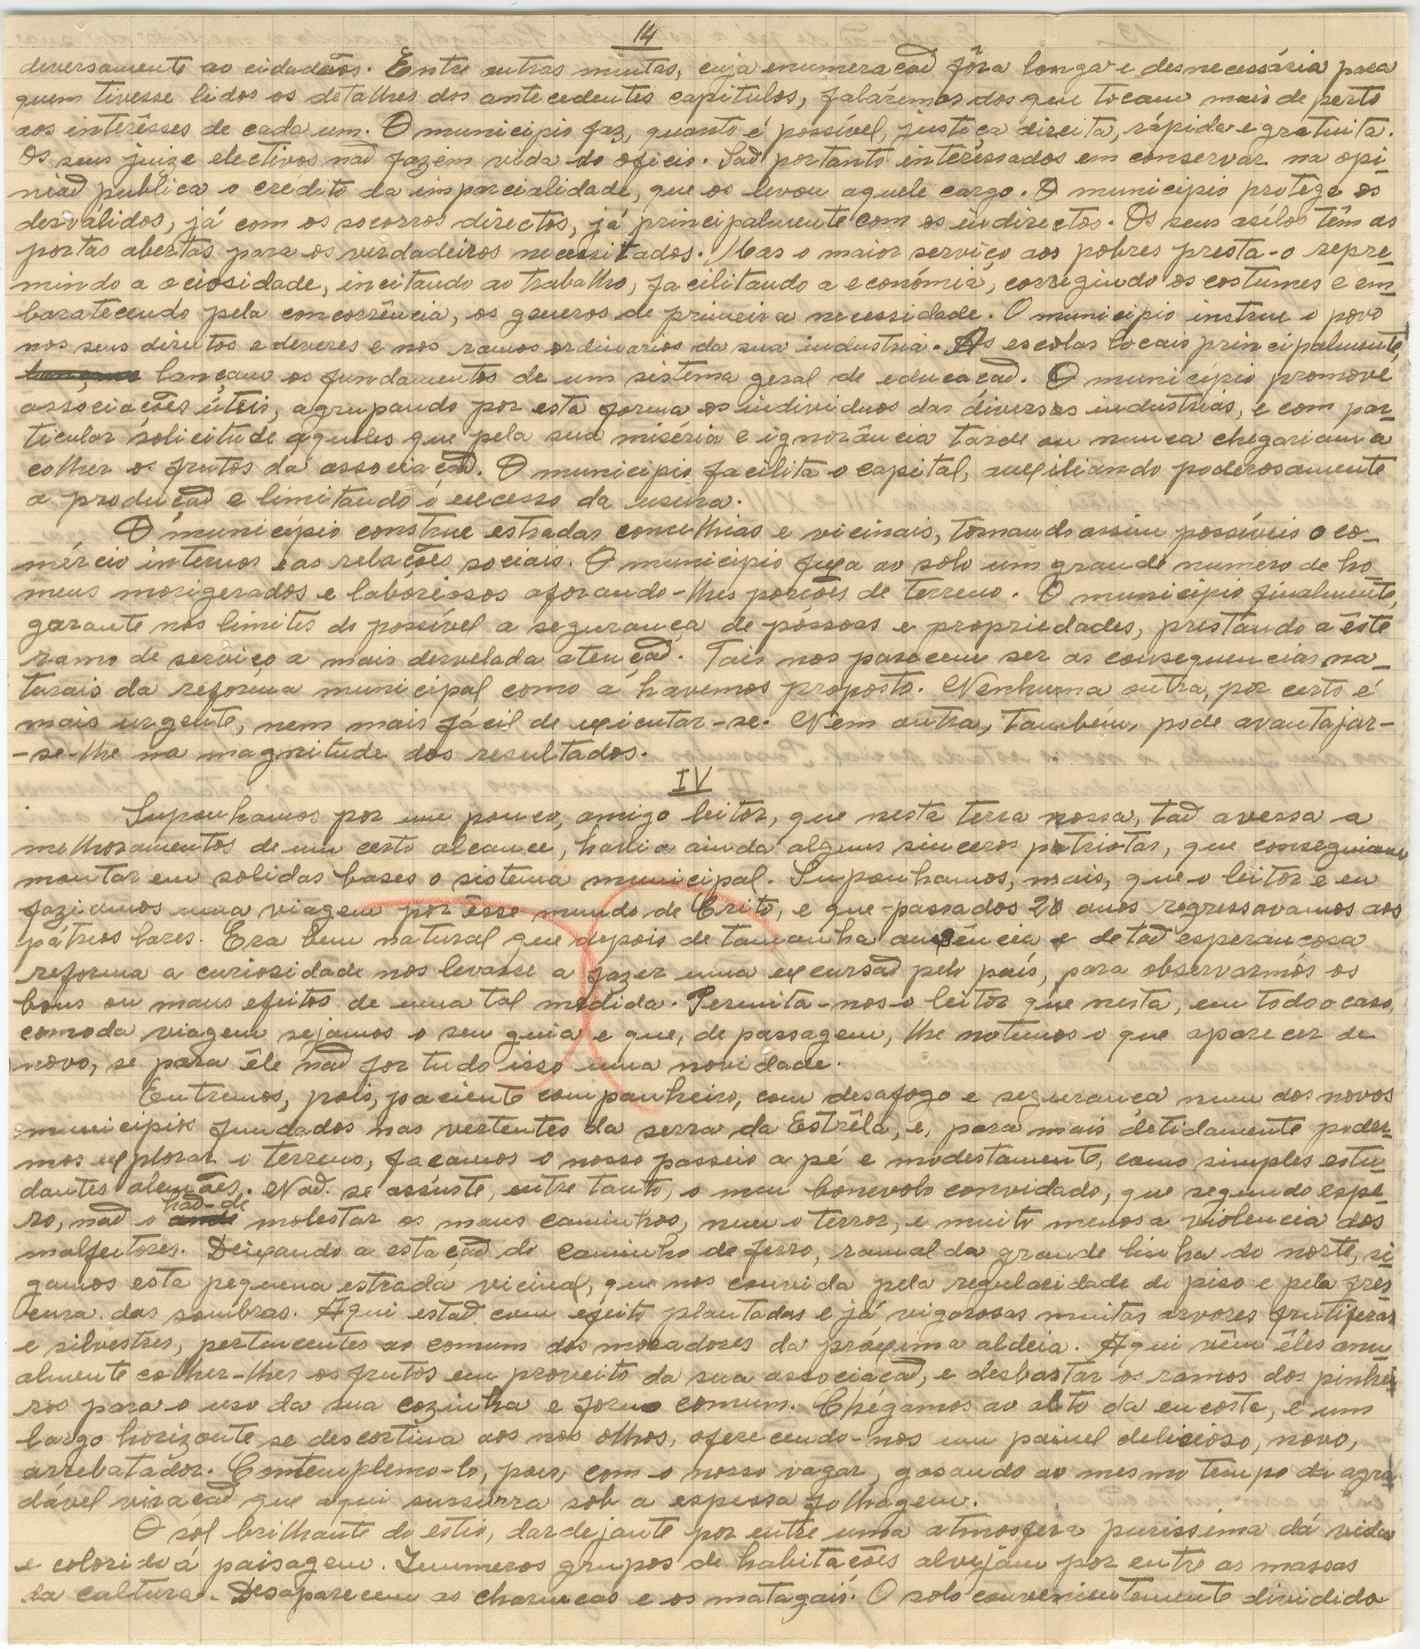 14
diversamente ao cidadãos. Entre outras muitas, cuja enumeração fôra longa e desnecessária para
quem tivesse lidos os detalhes dos antecedentes capitulos, falaremos dos que tocam mais de perto
aos interêsses de cada um. O municipio faz, quanto é possível, justiça direita, rápida e gratuita.
Os seus juize electivos não fazem vida do oficio. São portanto interêssados em conservar na opi-
nião publica o crédito da imparcialidade, que os levou aquele cargo. O municipio protége os
desválidos, já com os socorros directos, já principalmente com os indirectos. Os seus asílos têm as
portas abertas para os verdadeiros necessitados. Mas o maior serviço aos pobres presta-o repri-
mindo a ociosidade, incitando ao trabalho, facilitando a económia, corregindo os costumes e em-
baratecendo pela concorrência, os generos de primeira necessidade. O municipio instrue o povo
nos seus direitos e deveres e nos ramos ordinarios da sua industria. As escolas locais principalmente,
lançam os fundamentos de um sistema geral de educação. O municipio promove
associações úteis, agrupando por esta forma os individuos das diversas industrias, e com par-
ticular solicitude aqueles que pela sua miséria e ignorância tarde ou nunca chegariam a
colher os frutos da associação. O municipio facilita o capital, auxiliando poderosamente
a produção e limitando o excesso da usura.
O município construe estradas concelhias e vicinais, tornando assim possíveis o co-
mércio internos e as relações sociais. O municipio fixa ao solo um grande numero de ho
mens morigerados e laboriosos aforando-lhes porções de terreno. O municipio finalmente,
garante nos limites do possível a segurança de pessoas e propriedades, prestando a êste
ramo de serviço a mais desvelada atenção. Tais nos parecem ser as consequencias na-
turais da reforma municipal, como a havemos proposto. Nenhuma outra, por certo é
mais urgente, nem mais fácil de executar-se. Nem outra, também, pode avantajar-
-se-lhe na magnitude dos resultados.
IV
Suponhamos por um pouco, amigo leitor, que nesta terra nossa, tão avessa a
melhoramentos de um certo alcance, havia ainda alguns sinceros patriotas, que conseguiam
montar em solidas bases o sistema municipal. Suponhamos, mais, que o leitor e eu
faziamos uma viagem por êsse mundo de Cristo, e que passados 20 anos regressavamos aos
pátrios lares. Era bem natural que depois de tamanha ausência e de tão esperançosa
reforma a curiosidade nos levasse a fazer uma excursão pelo país, para observarmos os
bons ou maus efeitos de uma tal medida. Permita-nos o leitor que nesta, em todo o caso,
comoda viagem sejamos o seu guia e que, de passagem, lhe notemos o que aparecer de
novo, se para êle não for tudo isso uma novidade.
Entremos, pois, paciente companheiro, com desafogo e segurança num dos novos
municipios fundados nas vertentes da serra da Estrêla, e, para mais detidamente poder-
mos explorar o terreno, façamos o nosso passeio a pé e modestamente, como simples estu-
dantes alemães. Não se assuste, entre tanto, o meu benevolo convidado, que segundo espe-
ro, não o hão-de molestar os maus caminhos, nem o terror, e muito menos a violencia dos
malfeitores. Deixando a estação do caminho de ferro, ramal da grande linha do norte, si-
gamos esta pequena estrada vicinal, que nos convida pela regularidade do piso e pela fres-
cura das sombras. Aqui estão com efeito plantadas e já vigorosas muitas arvores frutiferas
e silvestres, pertencentes ao comum dos moradores da próxima aldeia. Aqui vêm êles anu-
almente colher-lhes os frutos em proveito da sua associação, e desbastar os ramos dos pinhei-
ros para o uso da sua cozinha e forno comum. Chégamos ao alto da encosta, e um
largo horizonte se descortina aos nos olhos, oferecendo-nos um painel delicioso, novo,
arrebatador. Contemplemo-lo, pois, com o nosso vagar, gosando ao mesmo tempo da agra-
dável viração que aqui sussurra sob a espessa folhagem.
O sol brilhante do estio, dardejante por entre uma atmosfera purissima dá vida
e colorido á paisagem. Inumeros grupos de habitações alvejam por entre as massas
da cultura. Desaparecem as charnecas e os matagais. O solo convenientemente dividido